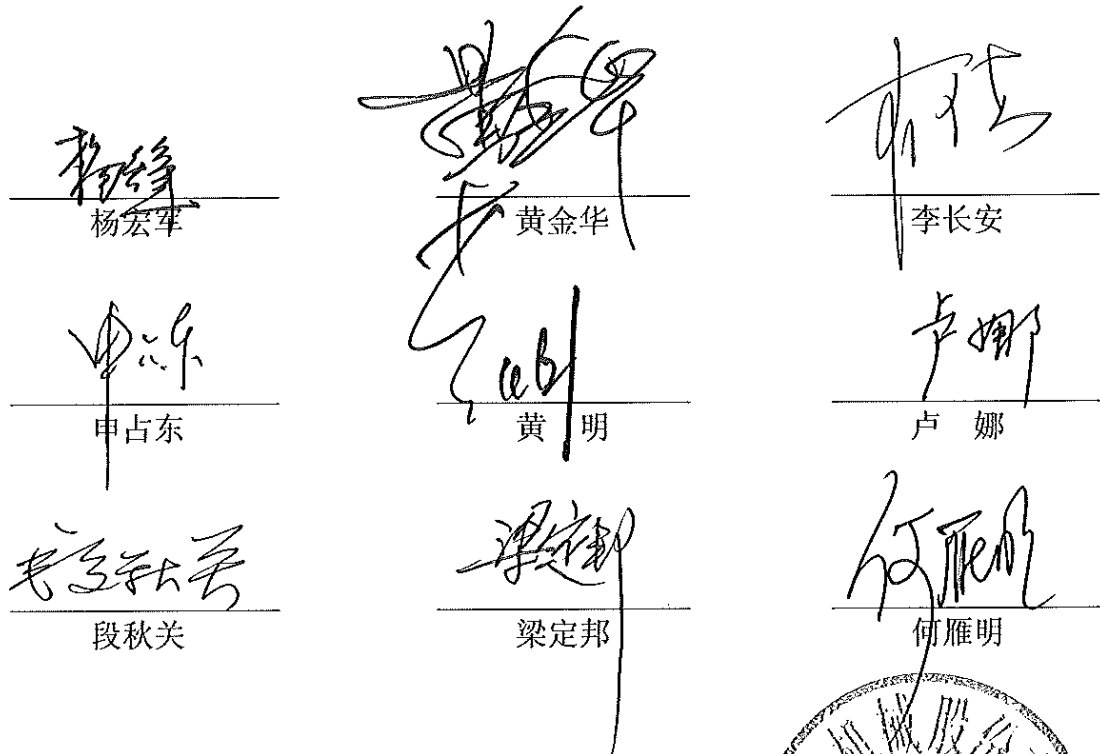 杨宏军 黄金华 李长安
申占东 黄 明 卢 娜
段秋关 梁定邦 何雁明
械股份